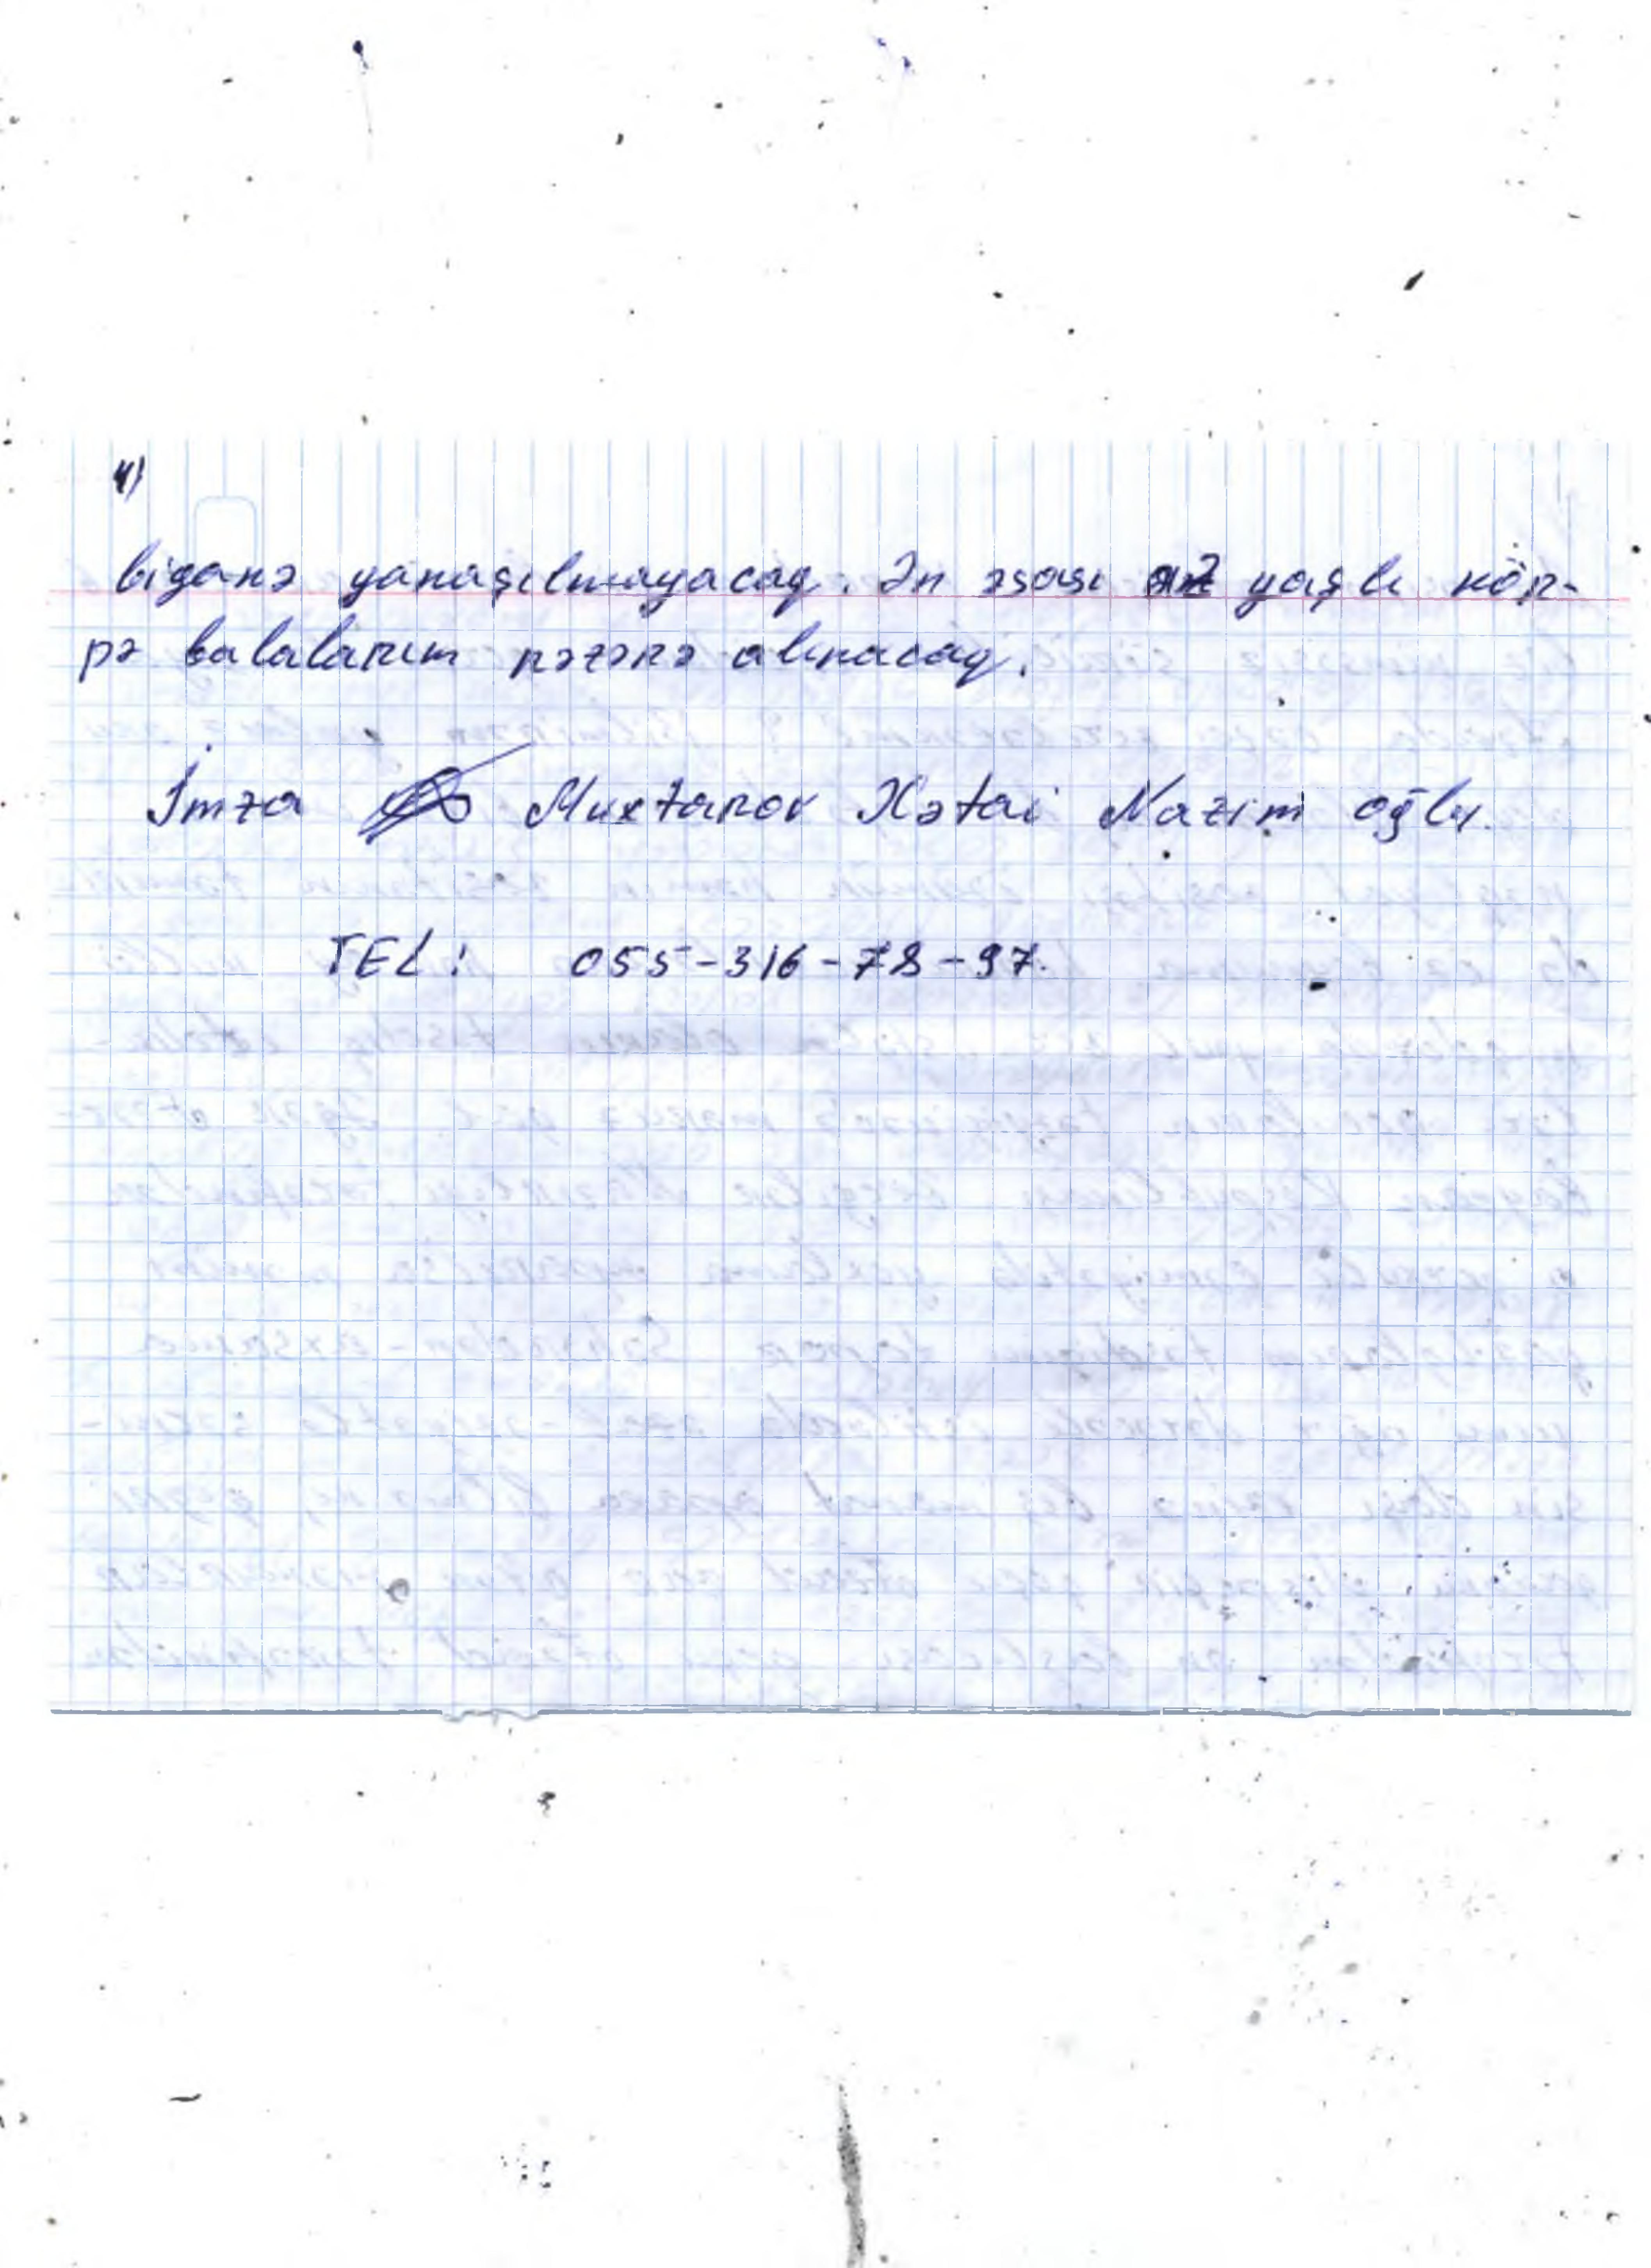 4)
biganə yanaşılmayacaq. Ən əsası az yaşlı kör-
pə balalarım nəzərə alınacaq.
İmza Muxtarov Xətai Nazim oğlu.
TEL: 055-316-78-97.